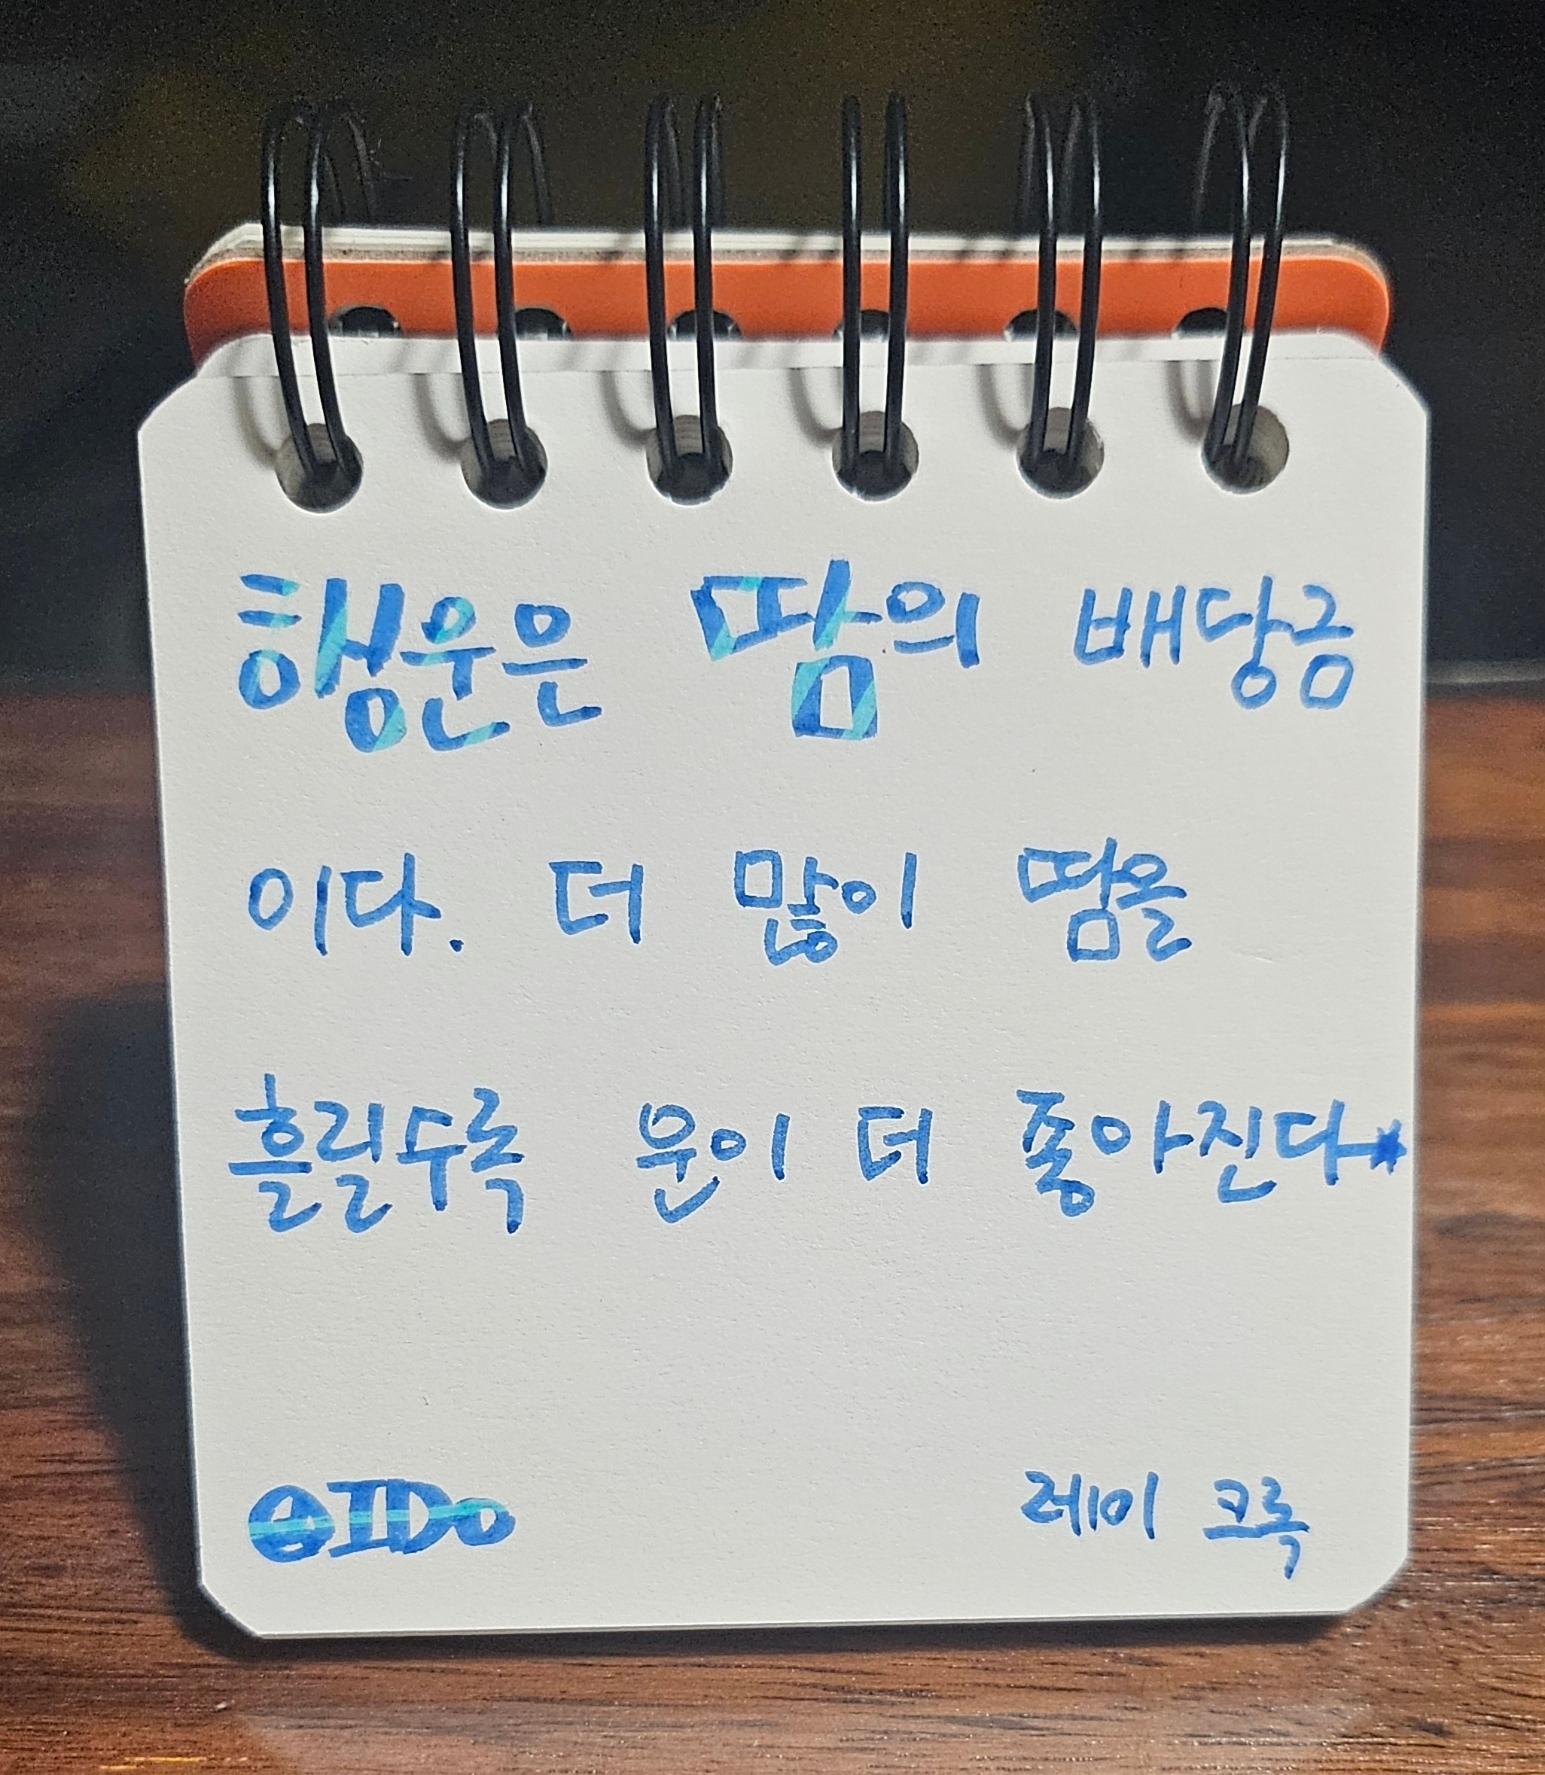 행운은 땀의 배당금
이다. 더 많이 땀을
흘릴수록 운이 더 좋아진다*
레이 크록